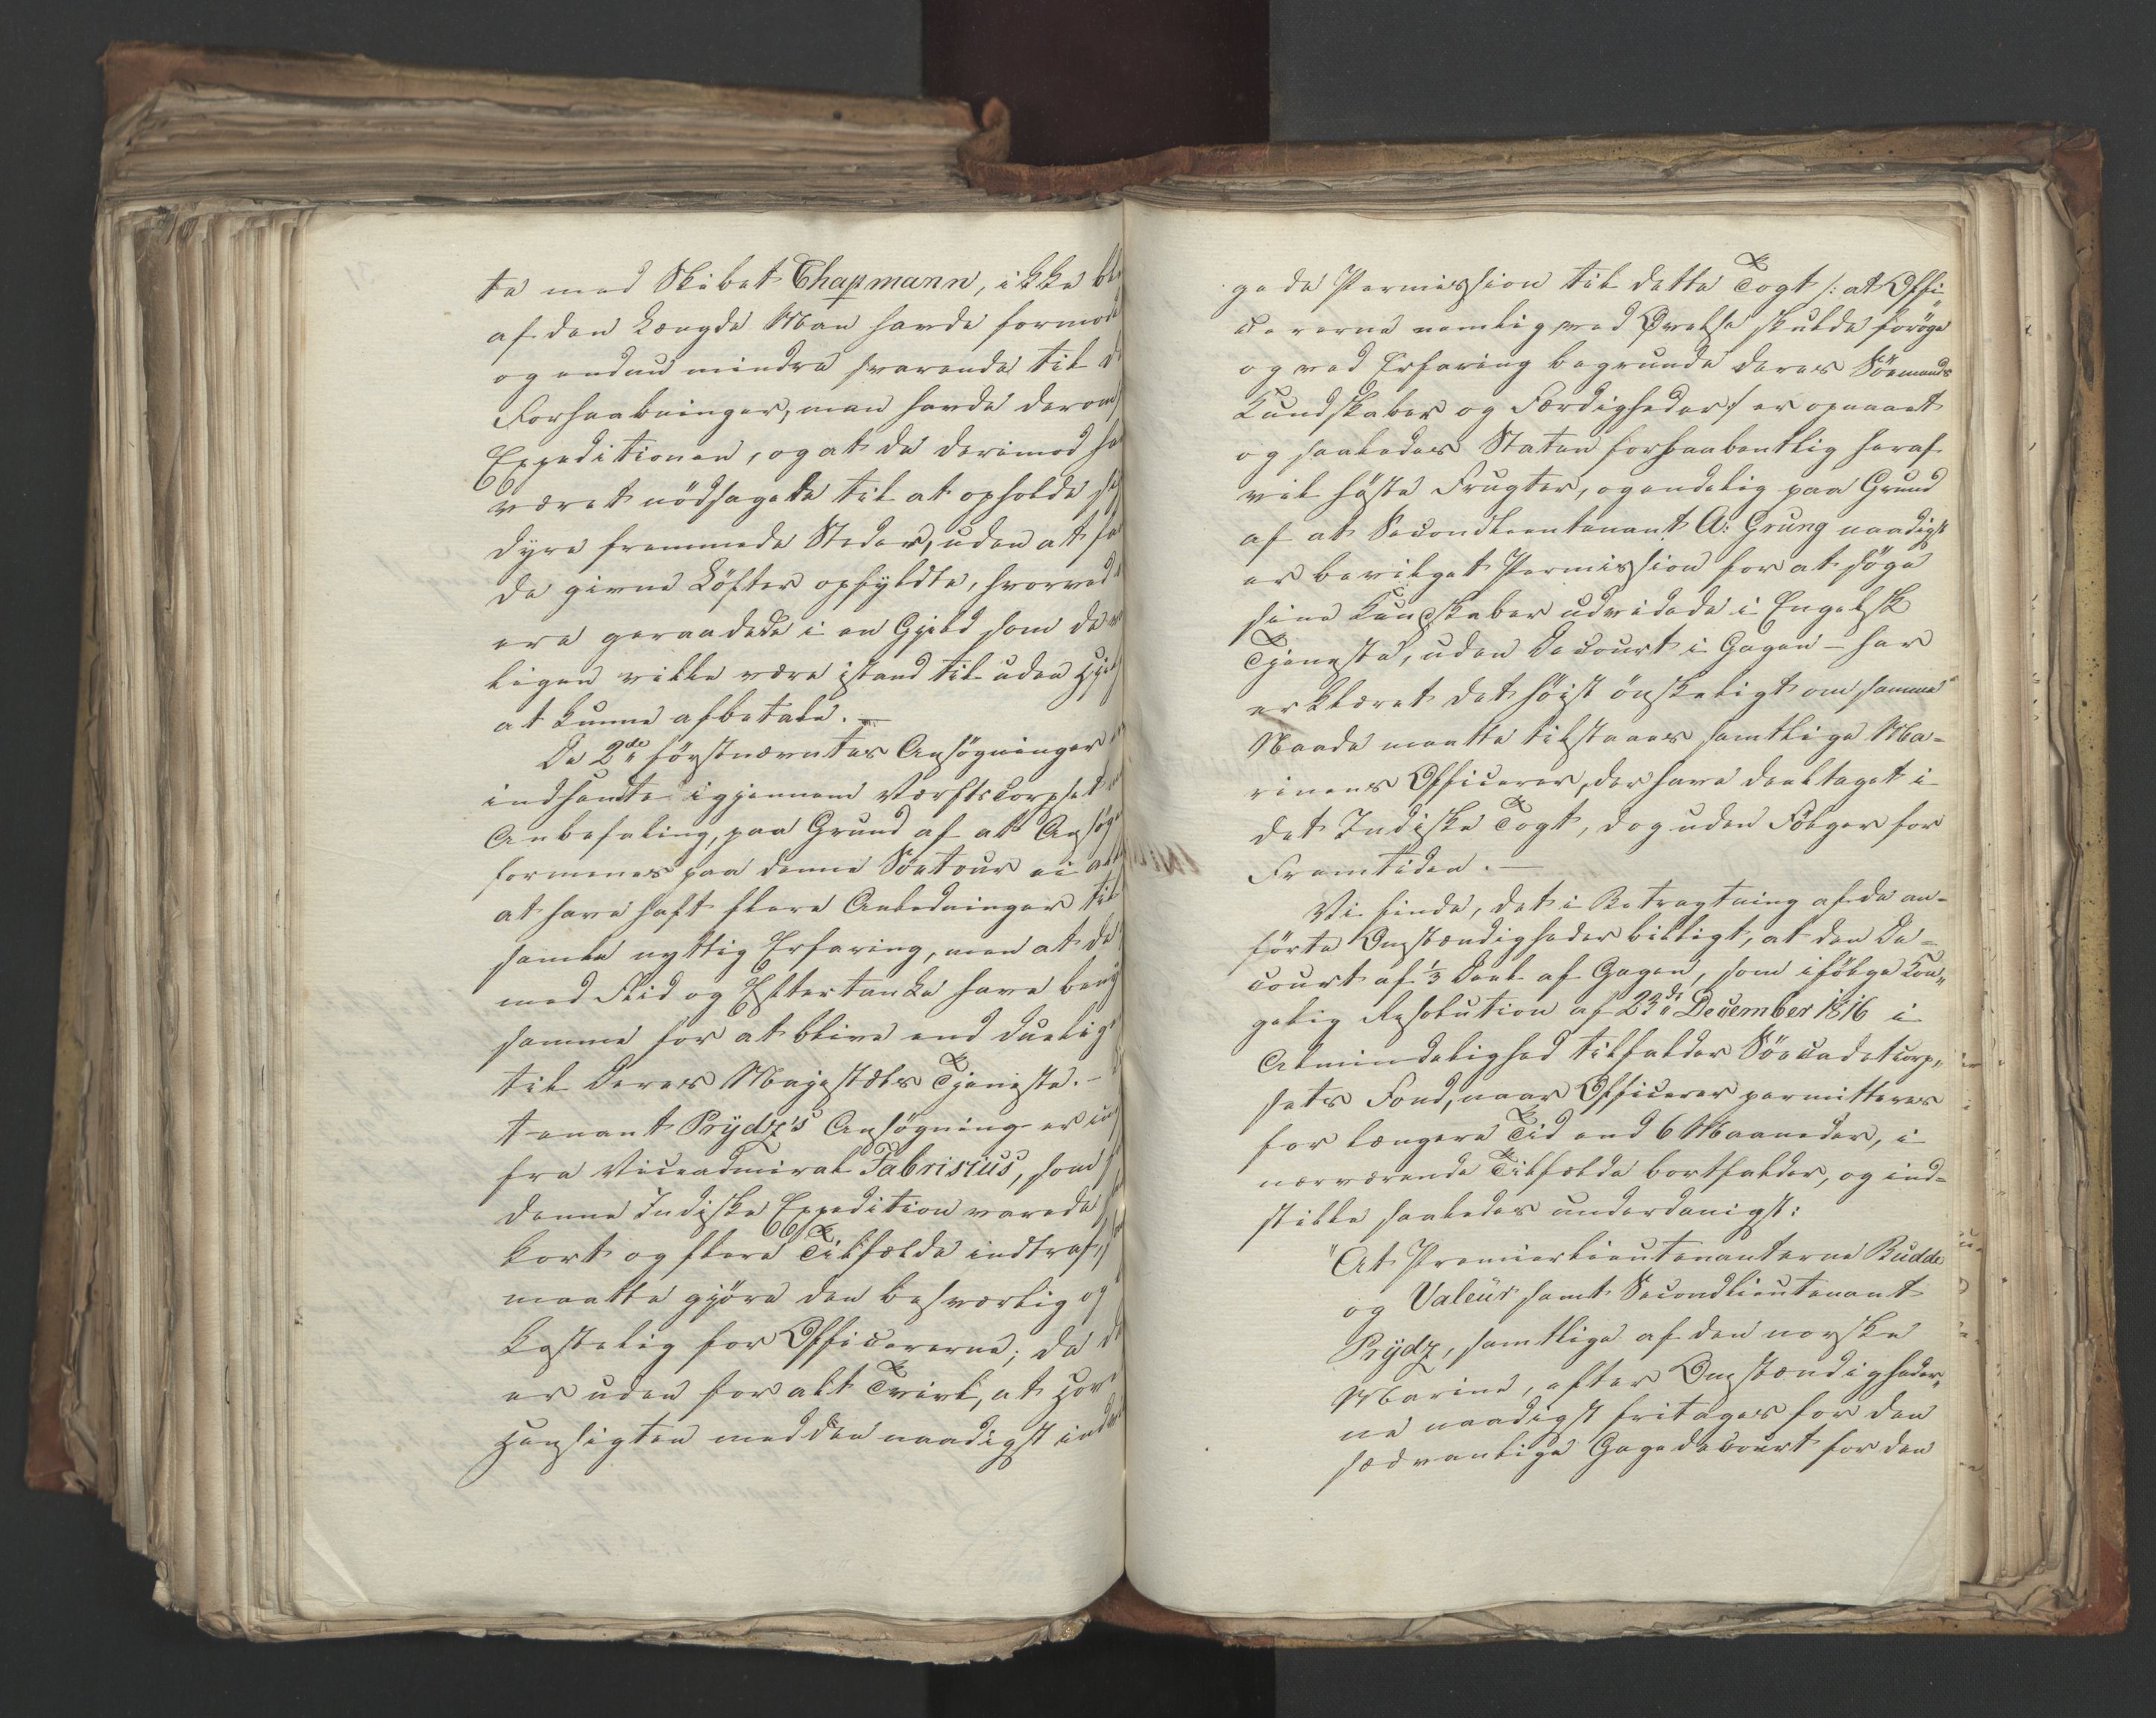 te med Skibet Chapmann, ikke
af den Længde Man havde
og endnu mindre svarende til
Forhaabninger, man havde
Expeditionen, og at de derimod
været nödsagede til at opholde
dyre fremmede Steder, uden at
de givne Löfter opfyldte, hvorved
ere geraadede i en Gjeld som de
ligen ville være istand til uden
at kunne afbetale. —
De 2de förstnævntes Ansögninger
indsendte igjennem Værftscorpset
Anbefaling, paa Grund af at
formenes paa denne Söetour ei
at have haft flere Anledninger til
samle nyttig Erfaring, men at de
med Flid og Eftertanke have
samme for at blive end duelige
til Deres Majestæts Tjeneste. —
tenant Prydz's Ansögning er
fra Viceadmiral Fabrisius, som
denne Indiske Expedition varede
kort og flere Tilfælde indtraf,
maatte gjöre den besværlig og
kostelig for Officererne; da
er uden for alt Tvivl, at
Hensigten med den naadigst
gede Permission til dette Togt /: at Offi-
cererne nemlig ved Övelse skulde foröge
og ved Erfaring begrunde deres Söemands
Kundskaber og Færdigheder :/ er opnaaet
og saaledes Staten forhaabentlig heraf
vil höste Frugter, og endelig paa Grund
af at Secondlieutenant A: Grung naadigst
er bevilget Permission for at söge
sine Kundskaber udvidede i Engelsk
Tjeneste, uden Decourt i Gagen – har
erklæret det höist önskeligt om samme
Naade maatte tilstaaes samtlige Ma-
rinens Officerer, der have deeltaget i
det Indiske Togt, dog uden Fölger for
Fremtiden. —
Vi finde, det i Betragtning af de an-
förte Omstændigheder billigt, at den De-
court af 1/3 Deel af Gagen, som ifölge Kon-
gelig Resolution af 23de December 1816 i
Almindelighed tilfalder Söecadetcorp-
sets Fond, naar Officerer permitteres
for længere Tid end 6 Maaneder, i
nærværende Tilfælde bortfalder, og ind-
stille saaledes underdanigst:
"At Premierlieutenanterne Budde
og Valeur samt Secondlieutenant
Prydz, samtlige af den norske
Marine, efter Omstændigheder-
ne naadigst fritages for den
sædvanlige Gagedecourt for den